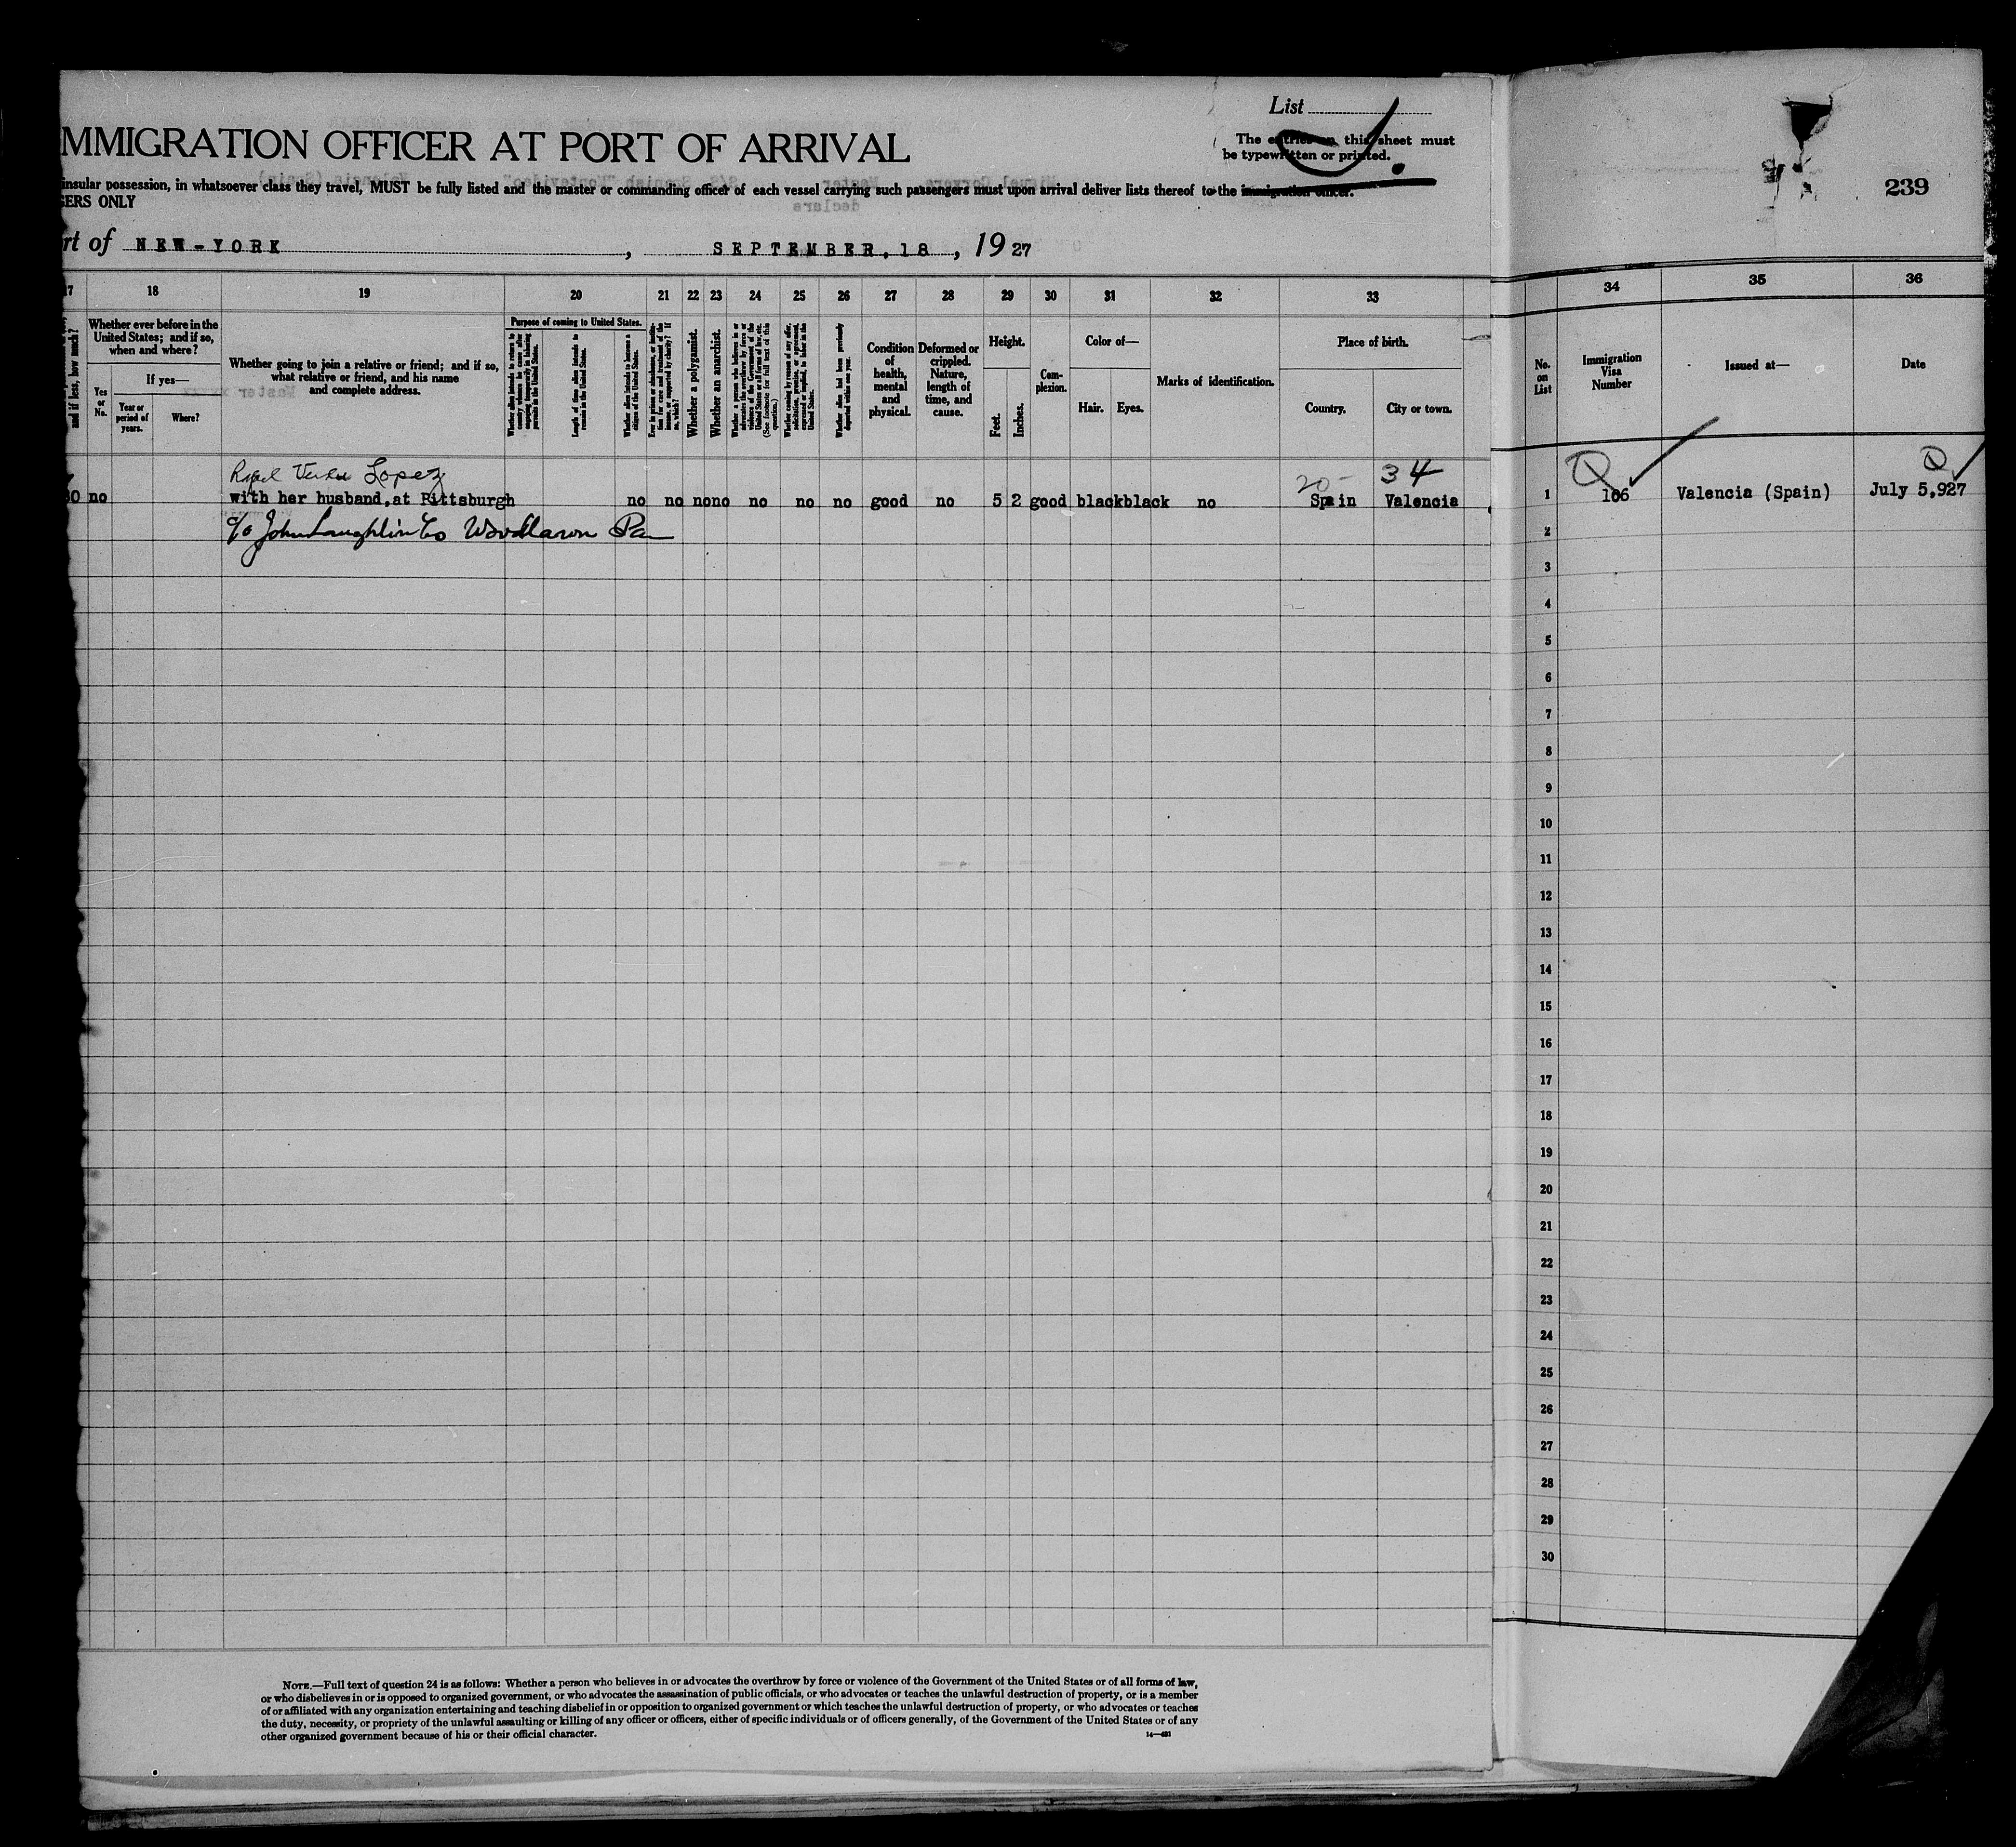 List
MMIGRATION OFFICER AT PORT OF ARRIVAL
The entries on this sheet must
be typewritten or printed.
insular possession, in whatsoever class they travel, MUST be fully listed and the master or commanding officer of each vessel carrying such passengers must upon arrival deliver lists thereof to the immigration officer.
GERS ONLY
239
rt of NEW-YORK, SEPTEMBER, 18, 19 27
17 18 19 20 21 22 23 24 25 26 27 28 29 30 31 32 33 34 35 36
and if less, how much?
Whether ever before in the
United States; and if so,
when and where?
Yes
or
No.
If yes—
Year or
period of
years.
Where?
Whether going to join a relative or friend; and if so,
what relative or friend, and his name
and complete address.
Purpose of coming to United States.
Length of time alien intends to
remain in the United States.
Whether alien intends to become a
citizen of the United States.
Whether a polygamist.
Whether an anarchist.
Whether alien had been previously
deported within one year.
Condition
of
health,
mental
and
physical.
Deformed or
crippled.
Nature,
length of
time, and
cause.
Height.
Feet.
Inches.
Com-
plexion.
Color of—
Hair.
Eyes.
Marks of identification.
Place of birth.
Country.
City or town.
No.
on
List
Immigration
Visa
Number
Issued at—
Date
Lopez
20- 34
no with her husband,at Pittsburgh no no no no no no no good no 5 2 good black black no Spain Valencia
1 106 Valencia (Spain) July 5,927
c/o John Laughlin Co Woodlawn Pa
2
3
4
5
6
7
8
9
10
11
12
13
14
15
16
17
18
19
20
21
22
23
24
25
26
27
28
29
30
NOTE.—Full text of question 24 is as follows: Whether a person who believes in or advocates the overthrow by force or violence of the Government of the United States or of all forms of law,
or who disbelieves in or is opposed to organized government, or who advocates the assassination of public officials, or who advocates or teaches the unlawful destruction of property, or is a member
of or affiliated with any organization entertaining and teaching disbelief in or opposition to organized government or which teaches the unlawful destruction of property, or who advocates or teaches
the duty, necessity, or propriety of the unlawful assaulting or killing of any officer or officers, either of specific individuals or of officers generally, of the Government of the United States or of any
other organized government because of his or their official character.